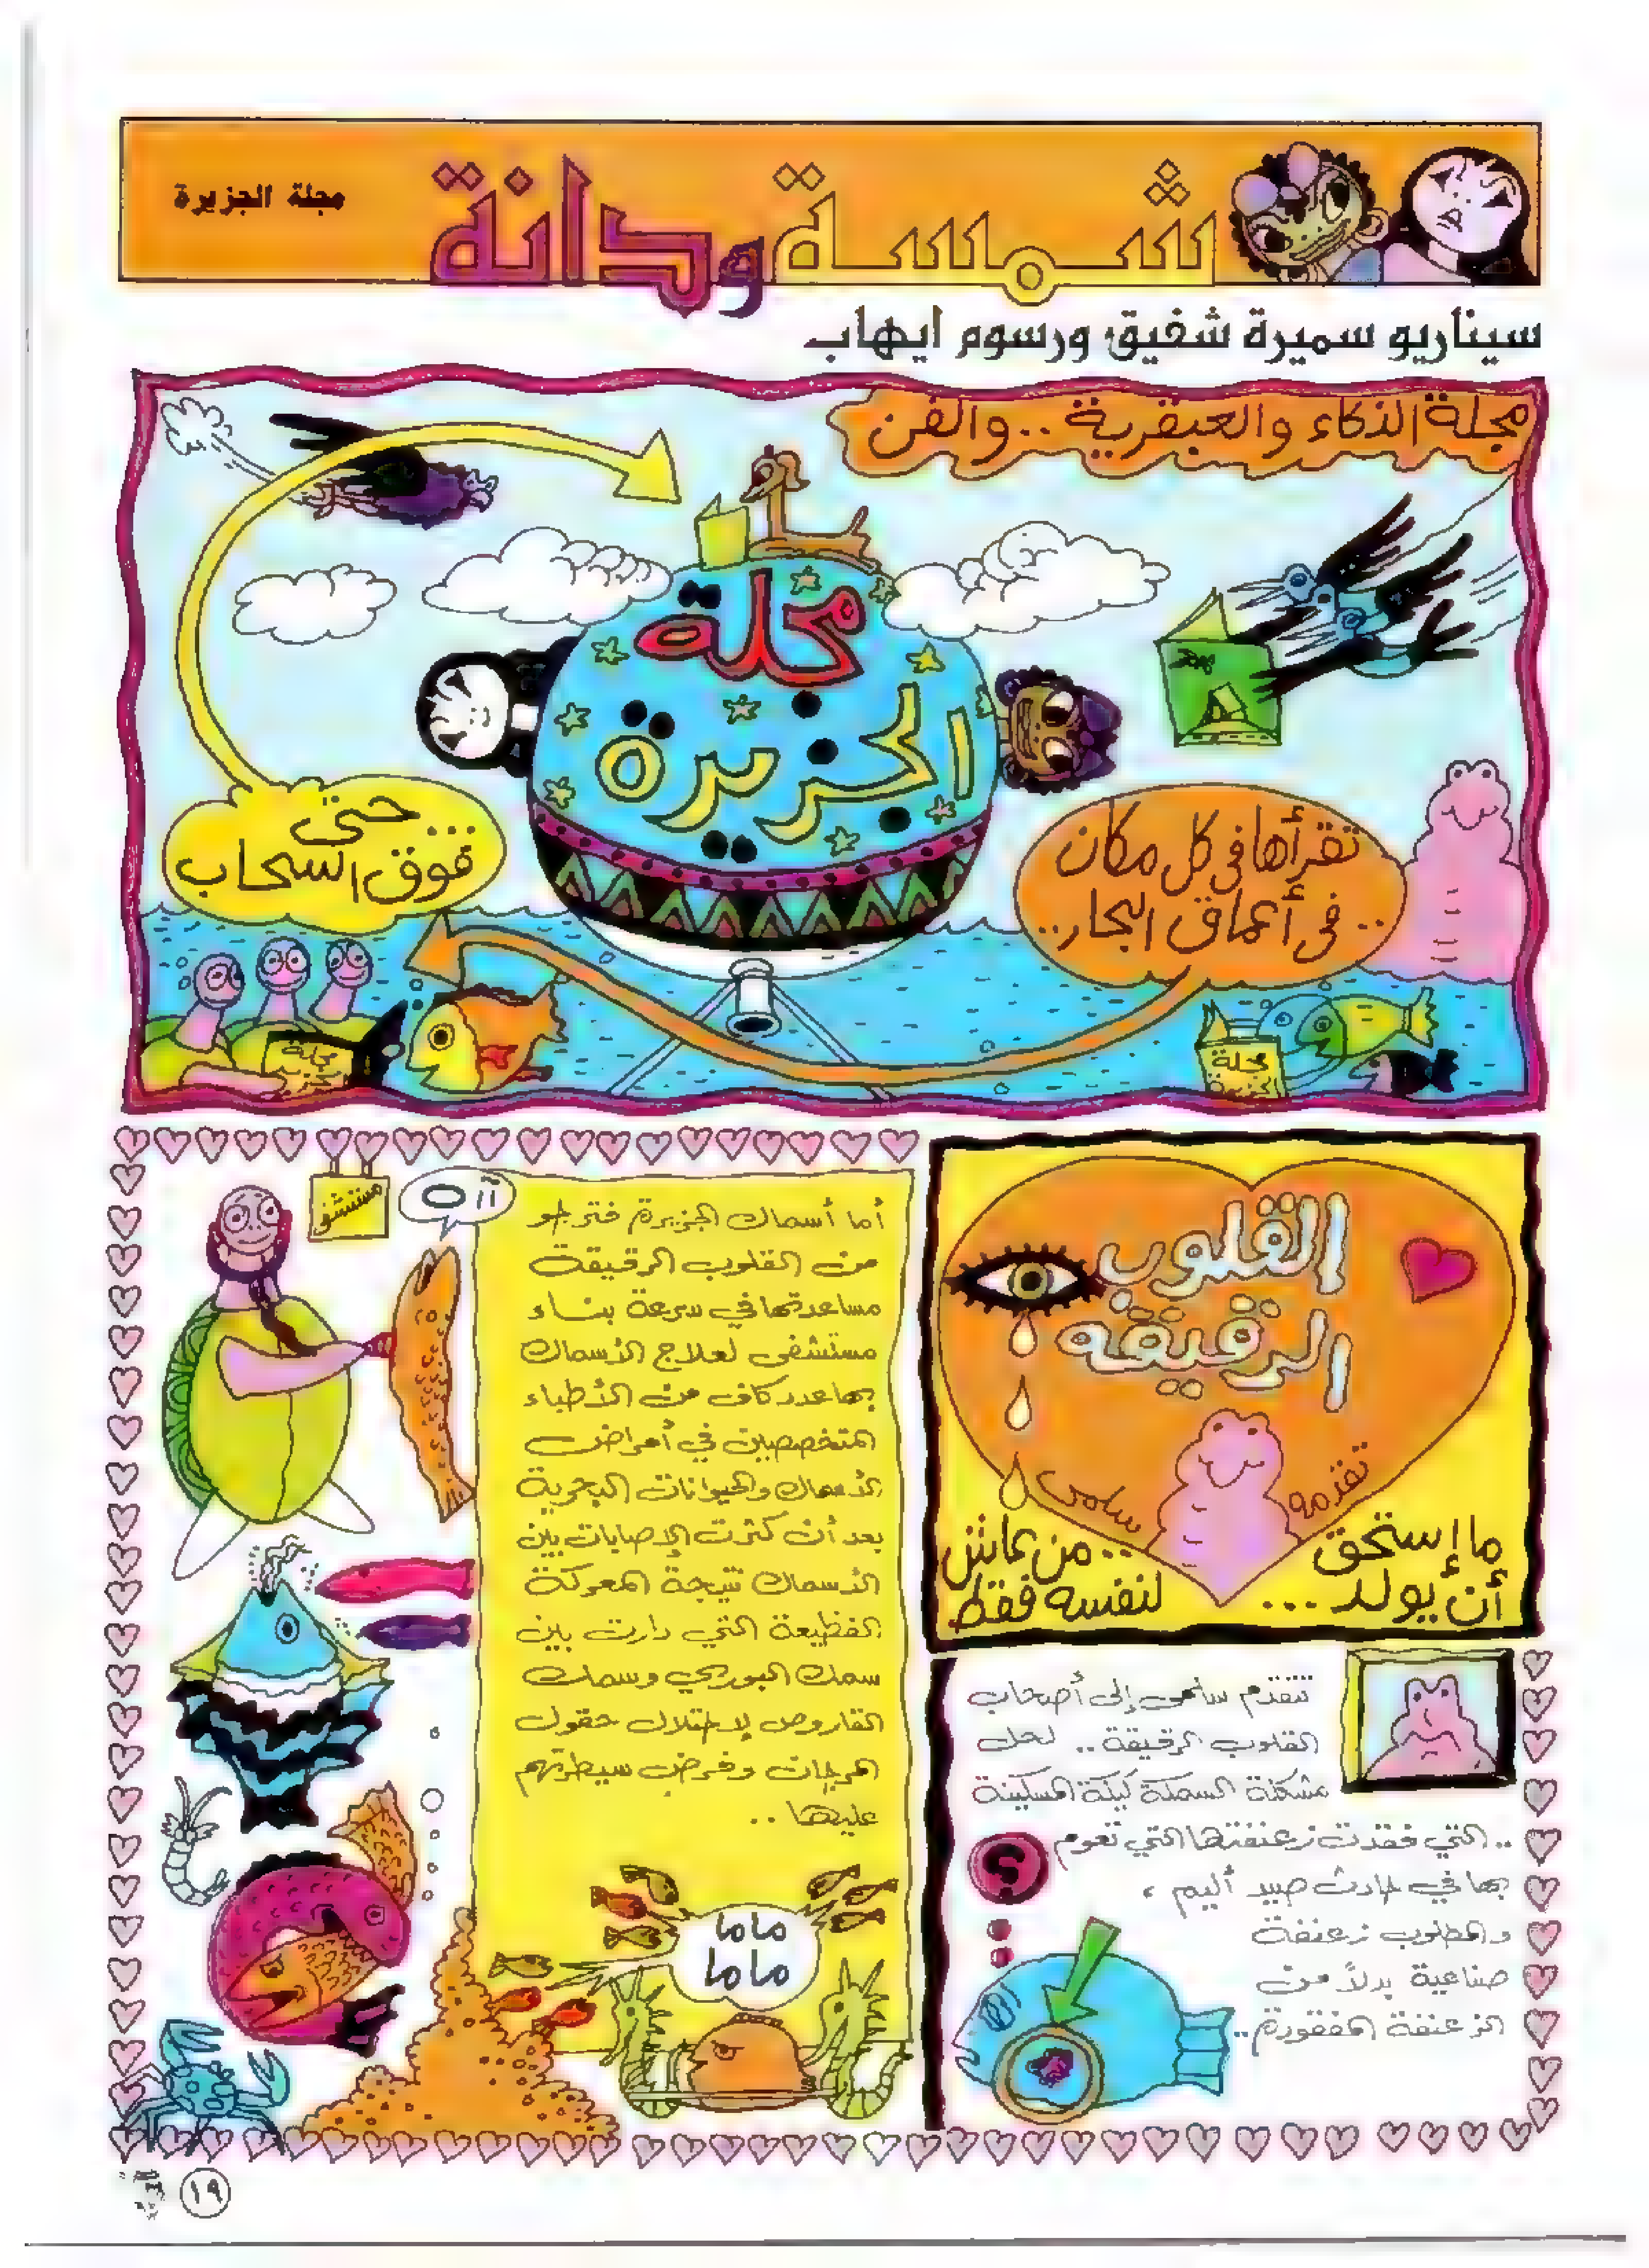 شمسة ودانة
مجلة الجزيرة
سيناريو سميرة شفيق ورسوم ايهاب
مجلة الذكاء والعبقرية .. والفن
مجلة
الجزيرة
تقرأها في كل مكان
.. في أعماق البحار ..
... حتى
فوق السحاب
مجلة
مجلة
القلوب
الرقيقة
تقدمه سلمى
ما إستحق
أن يولد ...
.. من عاش
لنفسه فقط
تتقدم سلمى إلى أصحاب
القلوب الرقيقة .. لحل
مشكلة السمكة كيكة المسكينة
.. التي فقدت زعنفتها التي تعوم
بها في حادث صيد أليم ،
والمطلوب زعنفة
صناعية بدلاً من
الزعنفة المفقودة ..
؟
مستشفى
آآ ه
أما أسماك الجزيرة فترجو
من القلوب الرقيقة
مساعدتها في سرعة بناء
مستشفى لعلاج الأسماك
بها عدد كاف من الأطباء
المتخصصين في أمراض
الأسماك والحيوانات البحرية
بعد أن كثرت الإصابات بين
الأسماك نتيجة المعركة
الفظيعة التي دارت بين
سمك البوري وسمك
القاروص لاحتلال حقول
المرجان وفرض سيطرتهم
عليها ..
ماما
ماما
١٩